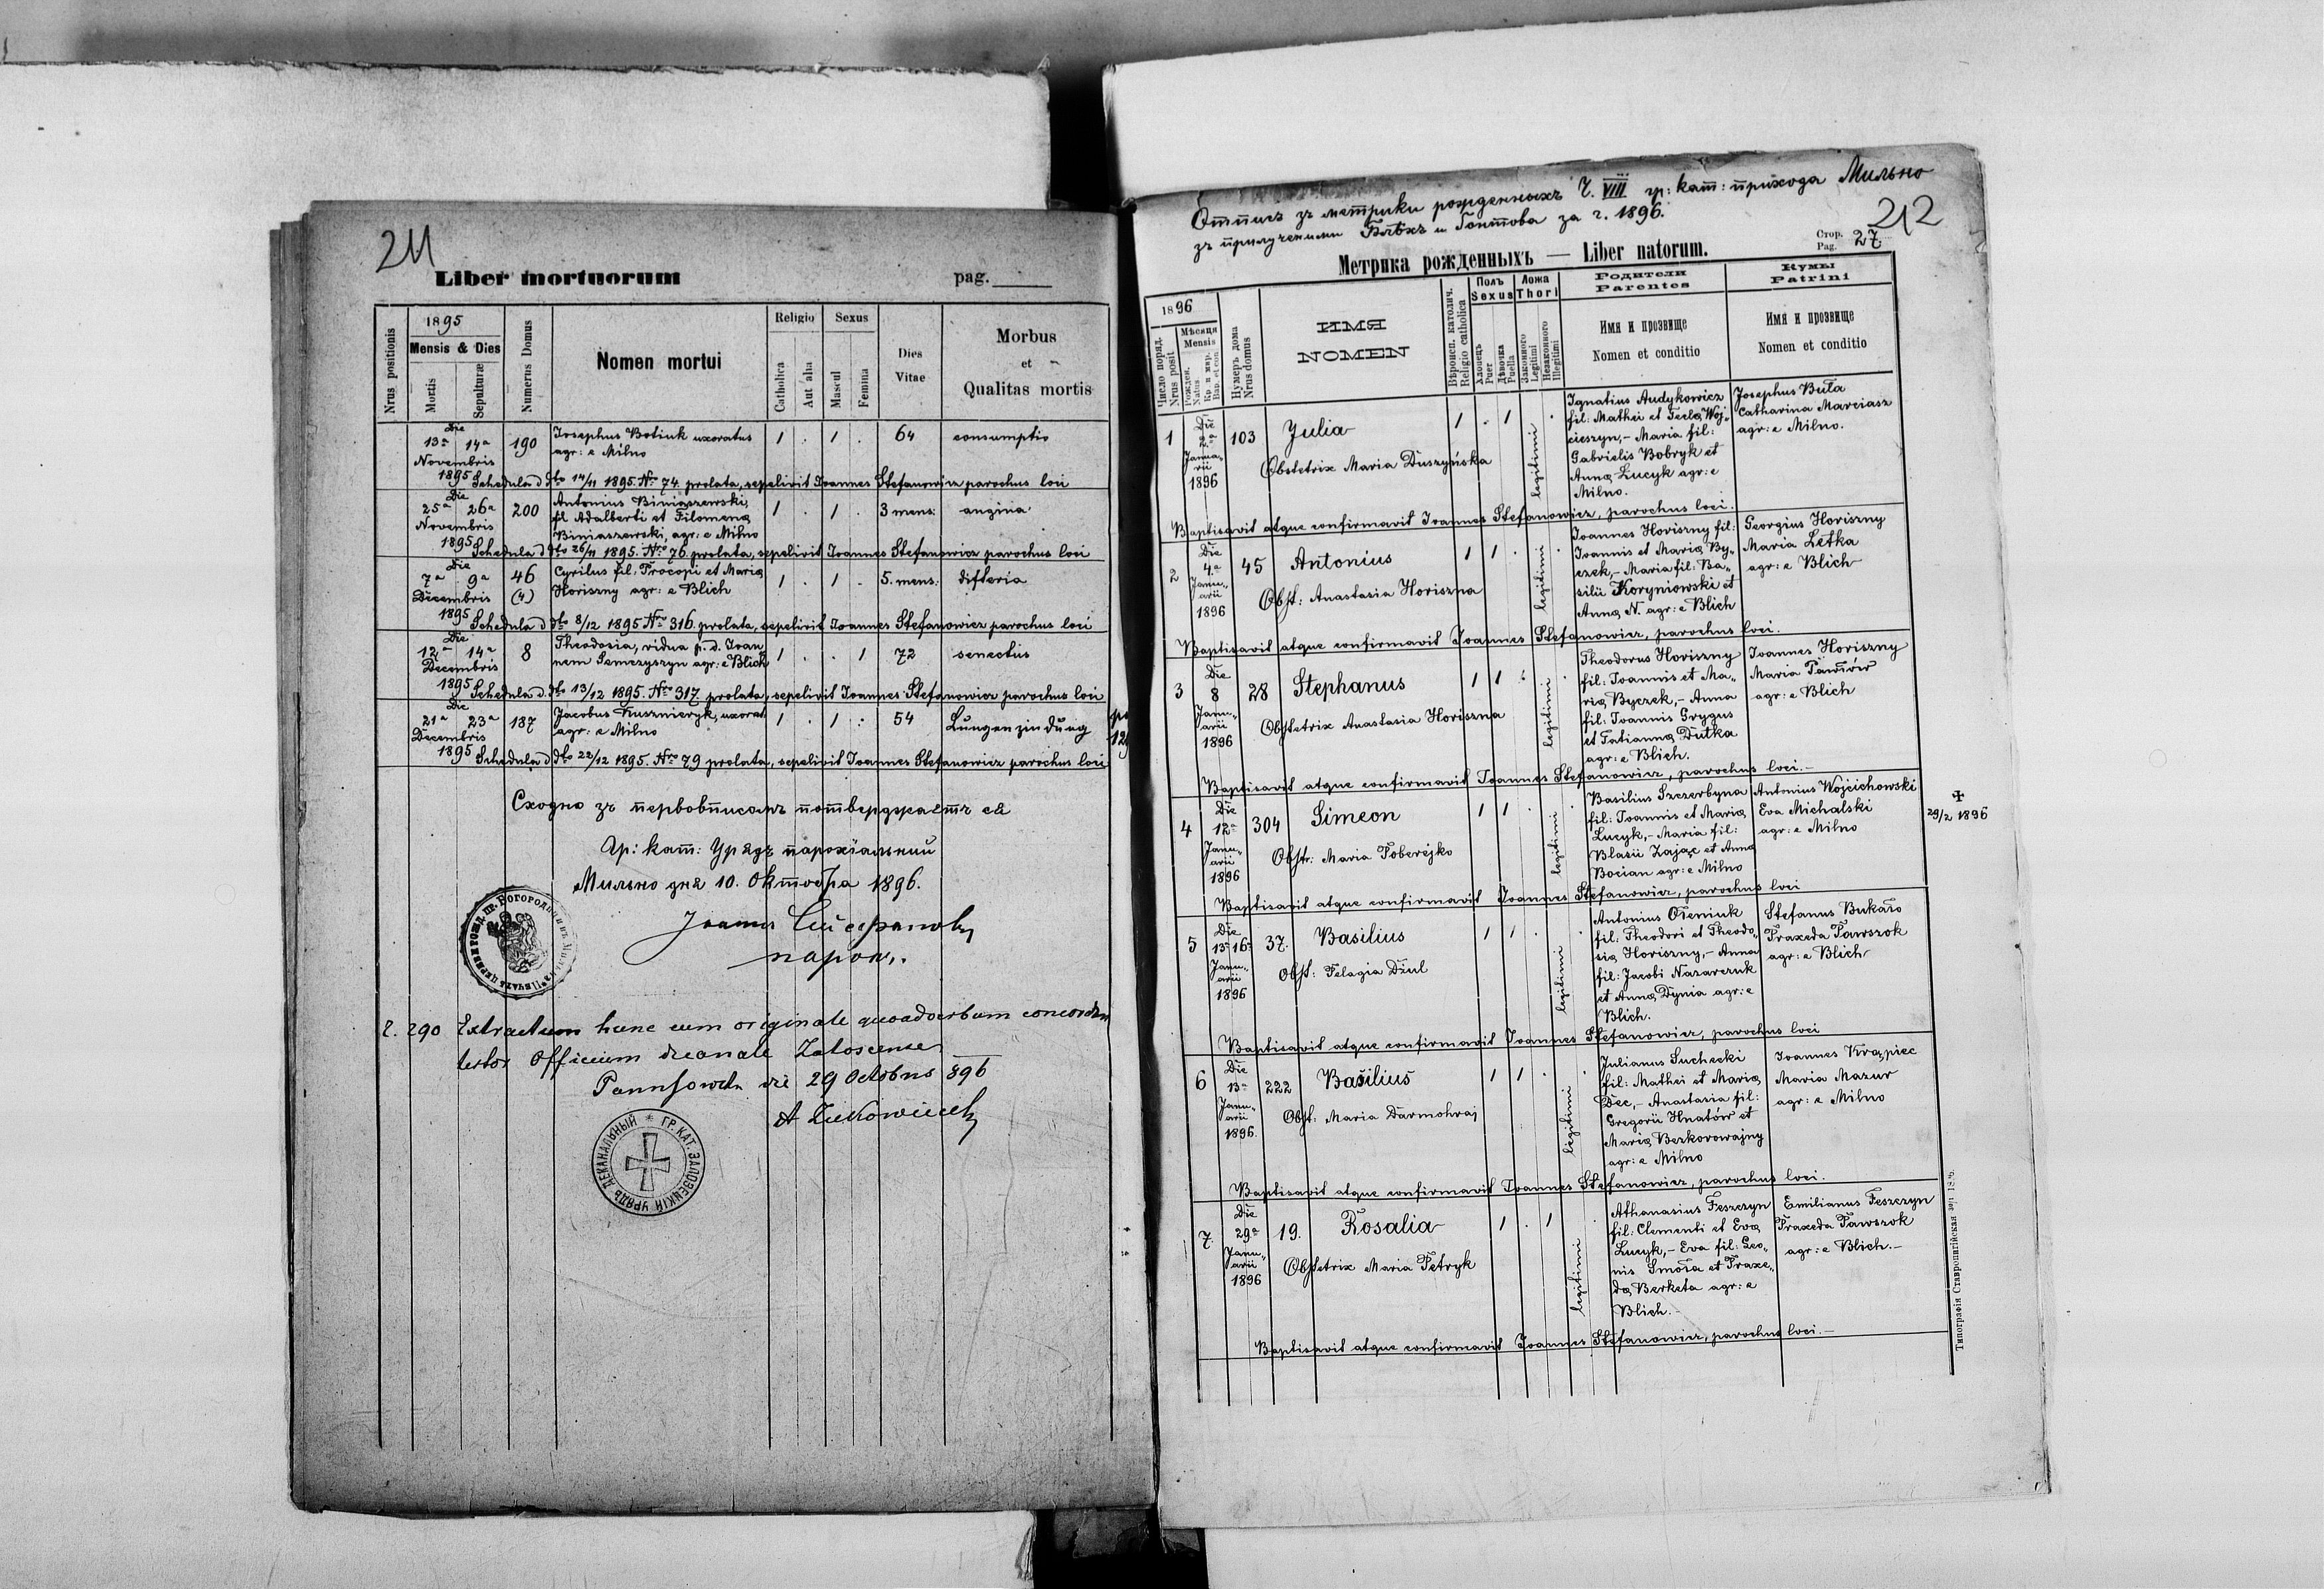 211
Liber mortuorum
pag.
Nrus positionis
1895
Mensis & Dies
Mortis
Sepulturæ
Numerus Domus
Nomen mortui
Religio
Catholica
Aut alia
Sexus
Mascul
Femina
Dies
Vitae
Morbus
et
Qualitas mortis
Die
13a 14a
Novembris
1895
190
Josephus Botiuk uxoratus
agr: e Milno
1 . 1 . 64 consumptio
Schedula ddto 14/11 1895. Nro 74. prolata, sepelivit Joannes Stefanowicz parochus loci
Die
25a 26a
Novembris
1895
200
Antonius Biniaszewski,
fil Adalberti et Filomena
Biniaszewski, agr: e Milno
1 . 1 . 3 mens: angina
Schedula ddto 26/11 1895. Nro 76. prolata, sepelivit Joannes Stefanowicz parochus loci
Die
7a 9a
Decembris
1895
46
(4)
Cyrilus fil: Procopi et Maria
Horiszny agr: e Blich
1 . 1 . 5. mens: difteria
Schedula ddto 8/12 1895 Nro 316. prolata, sepelivit Joannes Stefanowicz parochus loci
Die
12a 14a
Decembris
1895
8
Theodosia, vidua p. d. Joan
nem Semczyszyn agr: e Blich
1 . . 1 72 senectus
Schedula ddto 13/12 1895. Nro 317 prolata, sepelivit Joannes Stefanowicz parochus loci
Die
21a 23a
Decembris
1895
187
Jacobus Kusznieryk, uxorat
agr: e Milno
1 . 1 : 54 Lungenzindung
Schedula ddto 22/12 1895. Nro 79 prolata, sepelivit Joannes Stefanowicz parochus loci
Сходно зъ первовписомъ потверджаетъ ся
Гр: кат: Урядъ парохіальный
Мильно дня 10. Октобра 1896.
парох.
Ч. 290 Extractum hunc cum originale quoad verbum concordare
testor Officium decanale Zaloscense
die 29 Octobris 896
ГР. КАТ. ЗАЛОЗЕЦКІЙ УРЯДЪ ДЕКАНАЛЬНЫЙ
Отписъ зъ метрики рожденныхъ Ч. VIII гр: кат: прихода Мильно
зъ прилученими Блѣхъ и Гонтова за г. 1896.
212
Стор.
Pag. 27
Метрика рожденныхъ — Liber natorum.
1896
Число поряд.
Nrus posit
Мѣсяця
Mensis
Рожден.
Natus
Кр. и мир.
Bap. et con
Нумеръ дома
Nrus domus
ИМЯ
NOMEN
Вѣроисп. католич.
Religio catholica
Полъ
Sexus
Хлопецъ
Puer
Дѣвочка
Puella
Ложа
Thori
Законного
Legitimi
Незаконного
Illegitimi
Родители
Parentes
Имя и прозвище
Nomen et conditio
Кумы
Patrini
Имя и прозвище
Nomen et conditio
1
Die
2a
Janua„
rii
1896
103
Julia
Obstetrix Maria Duszyńska
1 . 1 .
legitimi
Ignatius Audykowicz
fil: Mathei et Tecla Woj„
cieszyn, – Maria fil:
Gabrielis Bobryk et
Anna Lucyk agr: e
Milno.
Josephus Buta
Catharina Marciasz
agr: e Milno.
Baptisavit atque confirmavit Joannes Stefanowicz, parochus loci.
2
Die
4a
Janu„
arii
1896
45
Antonius
Obst: Anastasia Horiszna
1 1 . .
legitimi
Joannes Horiszny fil:
Joannis et Maria By„
czek, – Maria fil: Ba„
silii Koryniowski et
Anna N. agr: e Blich
Georgius Horiszny
Maria Letka
agr: e Blich
Baptisavit atque confirmavit Joannes Stefanowicz, parochus loci.
3
Die
8
Janu„
arii
1896
28
Stephanus
Obstetrix Anastasia Horiszna
1 1 : .
legitimi
Theodorus Horiszny
fil: Joannis et Ma„
ria Byczek, – Anna
fil: Joannis Grygus
et Tatianna Dutka
agr: e Blich.
Joannes Horiszny
Maria Pawlów
agr: e Blich
Baptisavit atque confirmavit Joannes Stefanowicz, parochus loci. –
4
Die
12a
Janu„
arii
1896
304
Simeon
Obstr: Maria Poberejko
1 1 . .
legitimi
Basilius Szczerbyna
fil: Joannis et Maria
Lucyk, – Maria fil:
Blasii Zając et Anna
Bocian agr: e Milno
Antonius Wojcichowski
Eva Michalski
agr: e Milno
✠
29/2 1896
Baptisavit atque confirmavit Joannes Stefanowicz, parochus loci
5
Die
13a 16a
Janu„
arii
1896
37.
Basilius
Obst: Pelagia Dziul
1 1 . .
legitimi
Antonius Oleniuk
fil: Theodori et Theodo„
sia Horiszny, – Anna
fil: Jacobi Nazarczuk
et Anna Dynia agr: e
Blich.
Stefanus Bukało
Praxeda Pawszok
agr: e Blich
Baptisavit atque confirmavit Joannes Stefanowicz, parochus loci
6
Die
13a
Janu„
arii
1896.
222
Basilius
Obst: Maria Darmohraj
1 1 . .
legitimi
Julianus Suchecki
fil: Mathei et Maria
Dec, – Anastasia fil:
Gregorii Hnatów et
Maria Bezkorowajny
agr: e Milno
Joannes Krąpiec
Maria Mazur
agr: e Milno
Baptisavit atque confirmavit Joannes Stefanowicz, parochus loci.
7.
Die
29a
Janu„
arii
1896
19.
Rosalia
Obstetrix Maria Petryk
1 . 1 .
legitimi
Athanasius Feszczyn
fil: Clementi et Eva
Lucyk, – Eva fil: Leo„
nis Smoła et Praxe„
da Berketa agr: e
Blich.
Emilianus Feszczyn
Praxeda Pawszok
agr: e Blich. –
Baptisavit atque confirmavit Joannes Stefanowicz, parochus loci. –
Типографія Ставропигійская